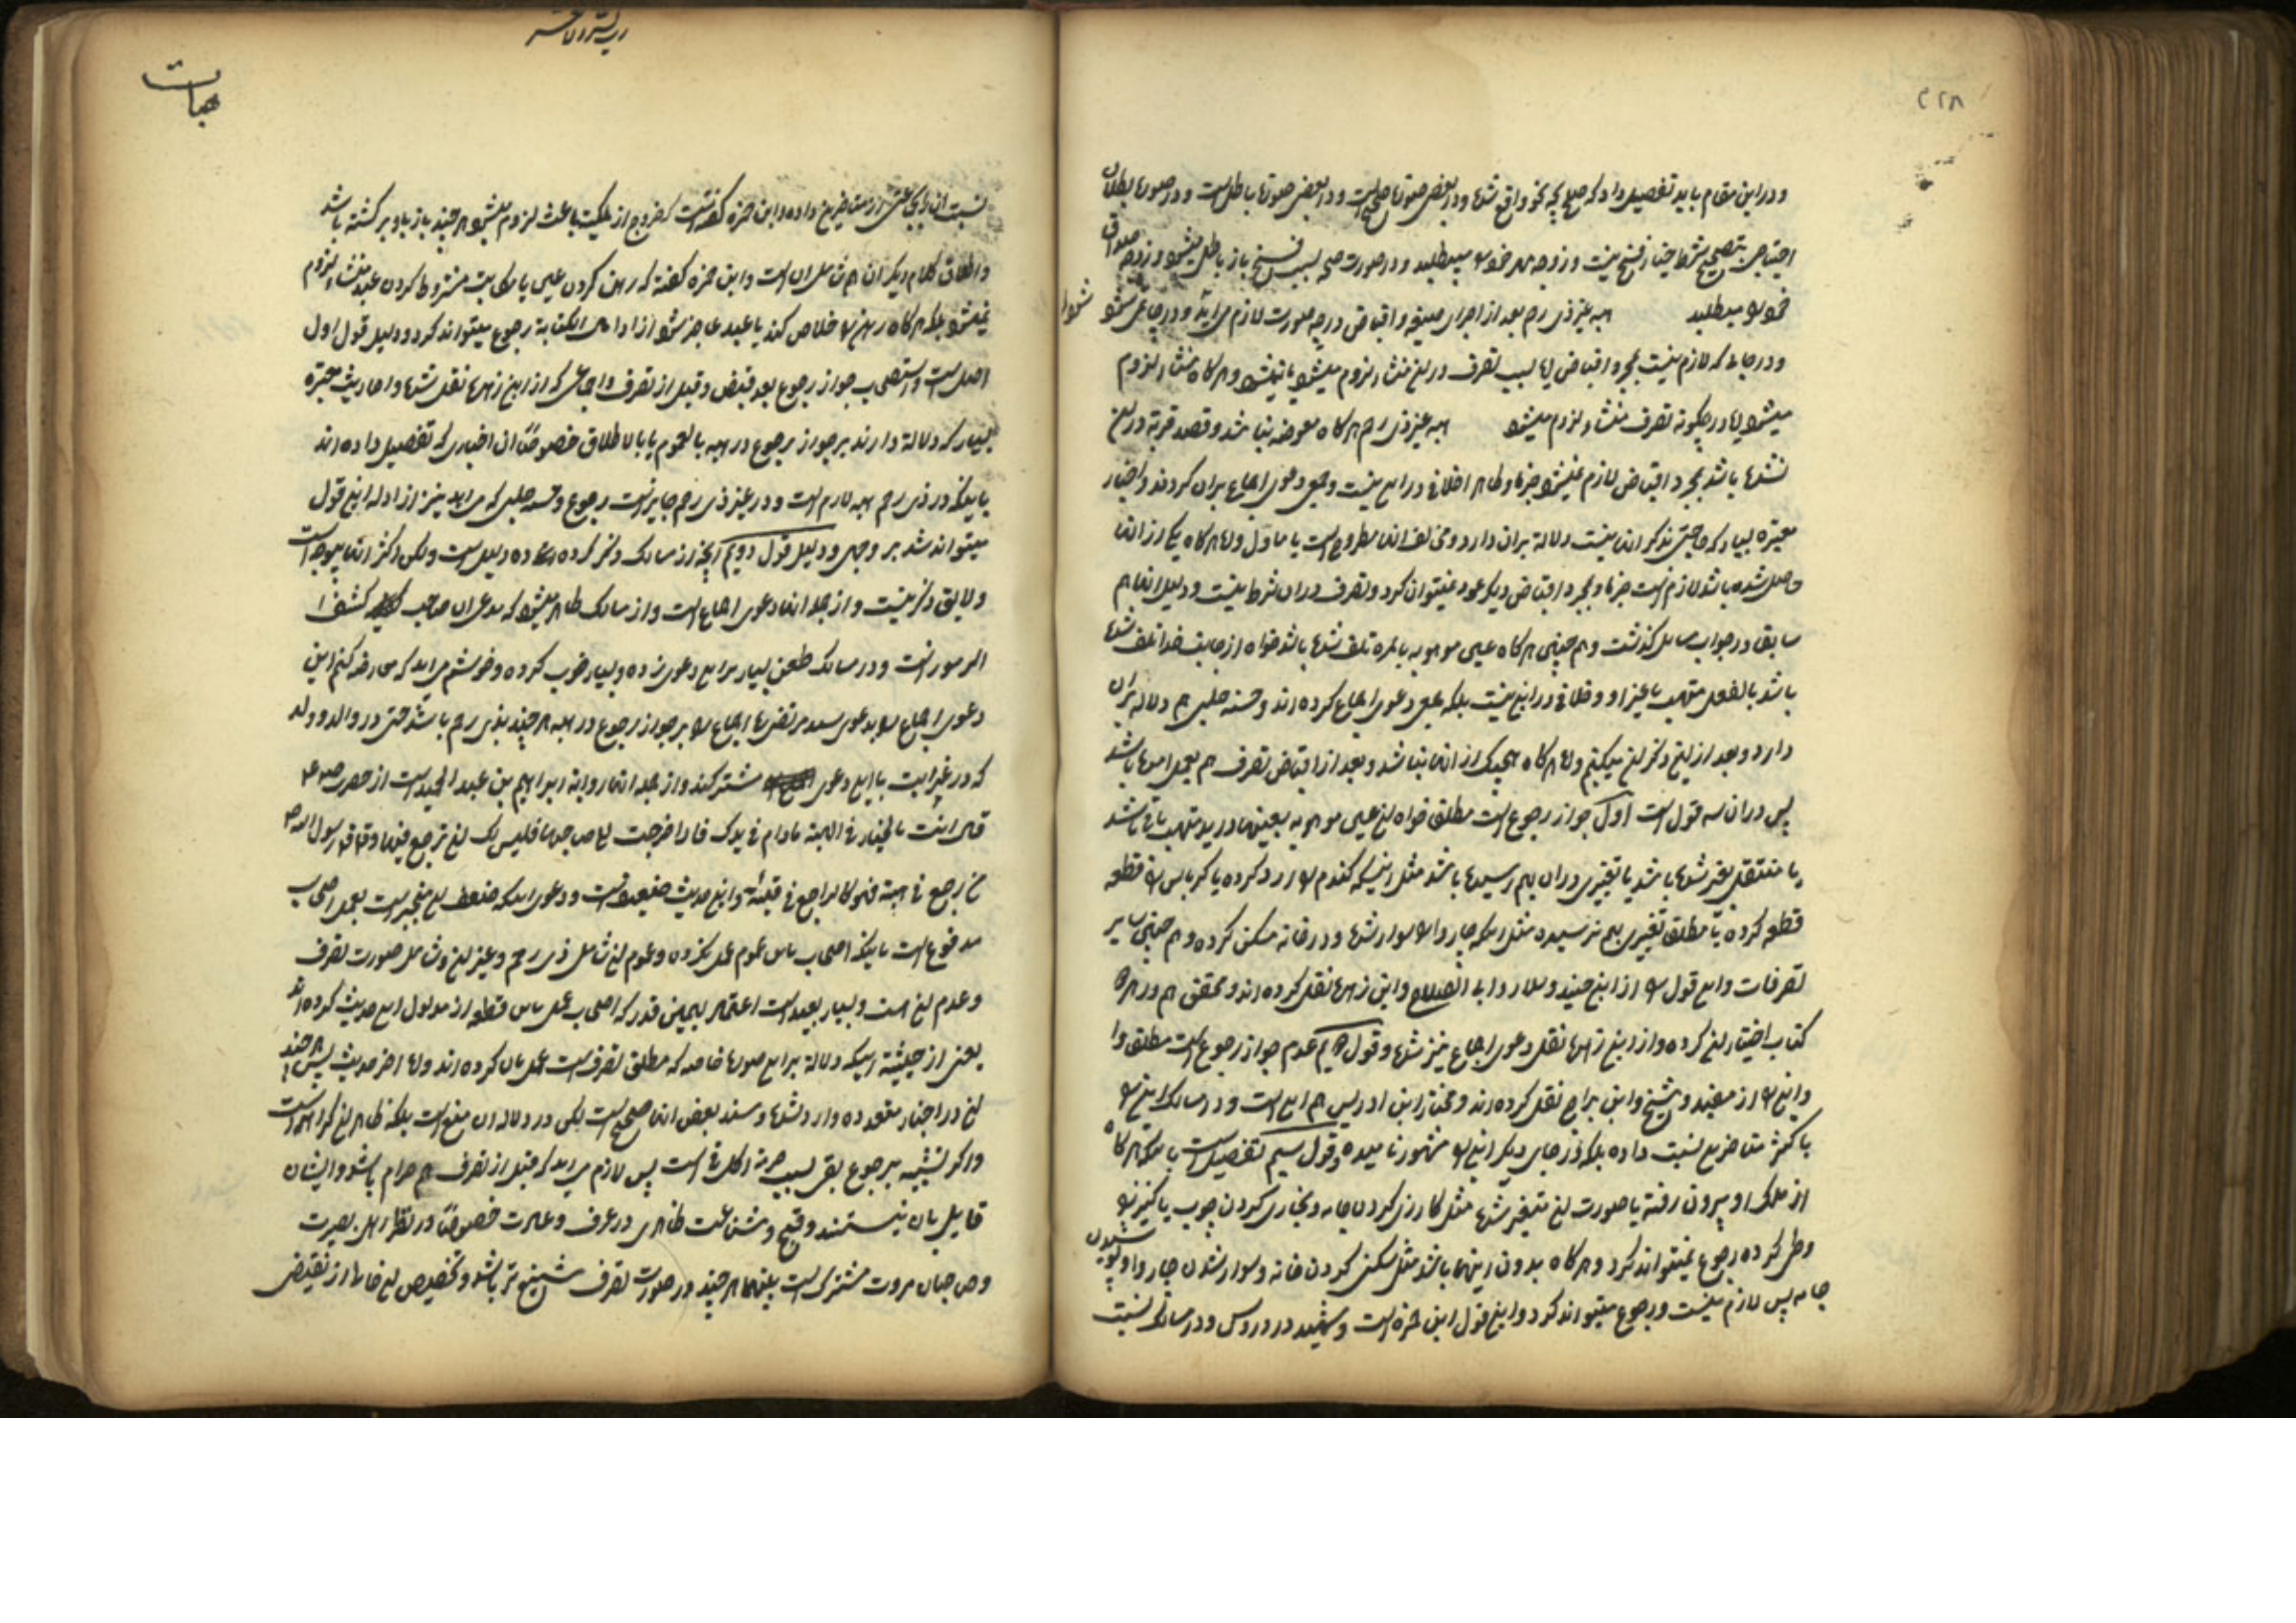 ۴۲۸
و در این مقام باید تفصیل داد که صلح بچه نحو واقع شده و در بعض صورتها صحیح است و در بعض صورتها باطل است و در صورتها بطلان
احتیاجی بتصحیح شرط خیار فسخ نیست و زوجه مهر خود را میطلبد و در صورت صحه بسبب فسخ باز باطل میشود و زوجه صداق
خود را میطلبد هبه غیر ذی رحم بعد از اجرای صیغه و اقباض در چه صورت لازم می آید و در چه جا نمی شود
و در جایی که لازم نیست بمجرد اقباض ایا بسبب تصرف در ان منشاء لزوم میشود یا نمیشود و هر گاه منشاء لزوم
میشود ایا در چگونه تصرف منشاء لزوم میشود هبه غیر ذی رحم هر گاه معوضه نباشد و قصد قربة در ان
نشده باشد بمجرد اقباض لازم نمیشود جزما و ظاهر اخلافی در این نیست و جمعی دعوی اجماع بران کرده اند و اخبار
معتبره بسیار که حاجتی بذکر انها نیست دلالة بران دارد و مخالف انها مطروح است یا ماول و اما هر گاه یکی از انها
حاصل شده باشد لازم است جزما و بمجرد اقباض دیگر عود نمیتوان کرد و تصرف دران شرط نیست و دلیل انها هم
سابق در جواب مسایل گذشت و هم چنین هر گاه عین موهوبه بالمره تلف شده باشد خواه از جانب خدا تلف شده
باشد یا بفعل متهب یا غیر او و خلافی در این نیست بلکه جمعی دعوی اجماع کرده اند و حسنه حلبی هم دلالة بران
دارد و بعد از این ذکر ان میکنیم و اما هر گاه هیچیک از انها نباشد و بعد از اقباض تصرف هم بعمل امده باشد
پس دران سه قول است اول جواز رجوع است مطلق خواه ان عین موهوبه بعینها در ید متهب باقی باشد
یا منتقل بغیر شده باشد یا تغییری دران بهم رسیده باشد مثل اینکه گندم را ارد کرده یا کرباس را قطعه
قطعه کرده یا مطلق تغییری بهم نرسیده مثل اینکه چاروا را سوار شده و در خانه مسکن کرده و هم چنین سایر
تصرفات و این قول را از ابن جنید و سلار و ابی الصلاح و ابن زهره نقل کرده اند و محقق هم در هر دو
کتاب اختیار ان کرده و از ابن زهره نقل دعوی اجماع نیز شده و قول دویم عدم جواز رجوع است مطلق وا
و این را از مفید و شیخ و ابن براج نقل کرده اند و مختار ابن ادریس هم این است و در مسالک این را
باکثر متاخرین نسبت داده بلکه در جای دیگر این را مشهور نامیده و قول سیم تفصیل است باینکه هر گاه
از ملک او بیرون رفته یا صورت ان متغیر شده مثل کازری کردن جامه و نجاری کردن چوب یا کنیز را
وطی کرده رجوع نمیتواند کرد و هر گاه بدون اینها باشد مثل سکنی کردن خانه و سوار شدن چاروا و پوشیدن
جامه پس لازم نیست و رجوع میتواند کرد و این قول ابن حمزه است و شهید در دروس و در مسالک نسبت
هبات
نسبت ان را بجماعتی از متاخرین داده و ابن حمزه گفته است که خروج از ملکیت باعث لزوم میشود هر چند باز باو برگشته باشد
و اطلاق کلام دیگران هم شامل ان است و ابن حمزه گفته که رهن کردن عین یا مکاتبت مشروط کردن عبد منشاء لزوم
نمیشود بلکه هر گاه رهن را خلاص کند یا عبد عاجز شود از ادا مال الکتابة رجوع میتواند کرد و دلیل قول اول
اصل است و استصحاب جواز رجوع بعد قبض و قبل از تصرف و اجماعی که از ابن زهره نقل شده و احادیث معتبره
بسیار که دلالة دارند بر جواز رجوع در هبه بالعموم یا بالاطلاق خصوصاً ان اخباری که تفصیل داده اند
باینکه در ذی رحم هبه لازم است و در غیر ذی رحم جایز است رجوع و حسنه حلبی که می اید نیز از ادله این قول
میتواند شد بر وجهی و دلیل قول دویم انچه از مسالک ذکر کرده ده دلیل است ولکن اکثر انها بیوجه است
و لایق ذکر نیست و از جمله انها دعوی اجماع است و از مسالک ظاهر میشود که مدعی ان صاحب کشف ا
الرموز است و در مسالک طعن بسیار بر این دعوی زده و بسیار خوب کرده و خوشم می اید که معارضه کنم این
دعوی اجماع را بدعوی سید مرتضی ره اجماع را بر جواز رجوع در هبه هر چند بذی رحم باشد حتی در والد و ولد
که در غرابت با این دعوی مشترکند و از جمله انها روایة ابراهیم بن عبد الحمید است از حضرت صادق ع
قال انت بالخیار فی الهبة مادام فی یدک فاذا خرجت الی صاحبها فلیس لک ان ترجع فیها و قال قال رسول الله ص
من رجع فی هبته فهو کالراجع فی قیئه و این حدیث ضعیف است و دعوی اینکه ضعف ان منجبر است بعمل اصحاب
مدفوع است باینکه اصحاب باین عموم عمل نکرده و عموم ان شامل ذی رحم و غیر ان و شامل صورت تصرف
و عدم ان است و بسیار بعید است اعتماد بهمین قدر که اصحاب عمل باین قطعه از مدلول این حدیث کرده اند
یعنی از حیثیة اینکه دلالة بر این صورت خاصه که مطلق تصرف است عمل بان کرده اند و اما اخر حدیث پس هر چند
ان در اخبار متعدده وارد شده و سند بعض انها صحیح است لکن در دلالة ان منع است بلکه ظاهر ان کراهت است
و اگر تشبیه برجوع بقی بسبب حرمة اکل قی است پس لازم می اید که قبل از تصرف هم حرام باشد و ایشان
قایل بان نیستند و قبح و شناعت ظاهری در عرف و عادت خصوصاً در نظر اهل بصیرت
و صاحبان مروت مشترک است بینهما هر چند در صورت تصرف شنیع تر باشد و تخصیص ان خاصا از نقیض